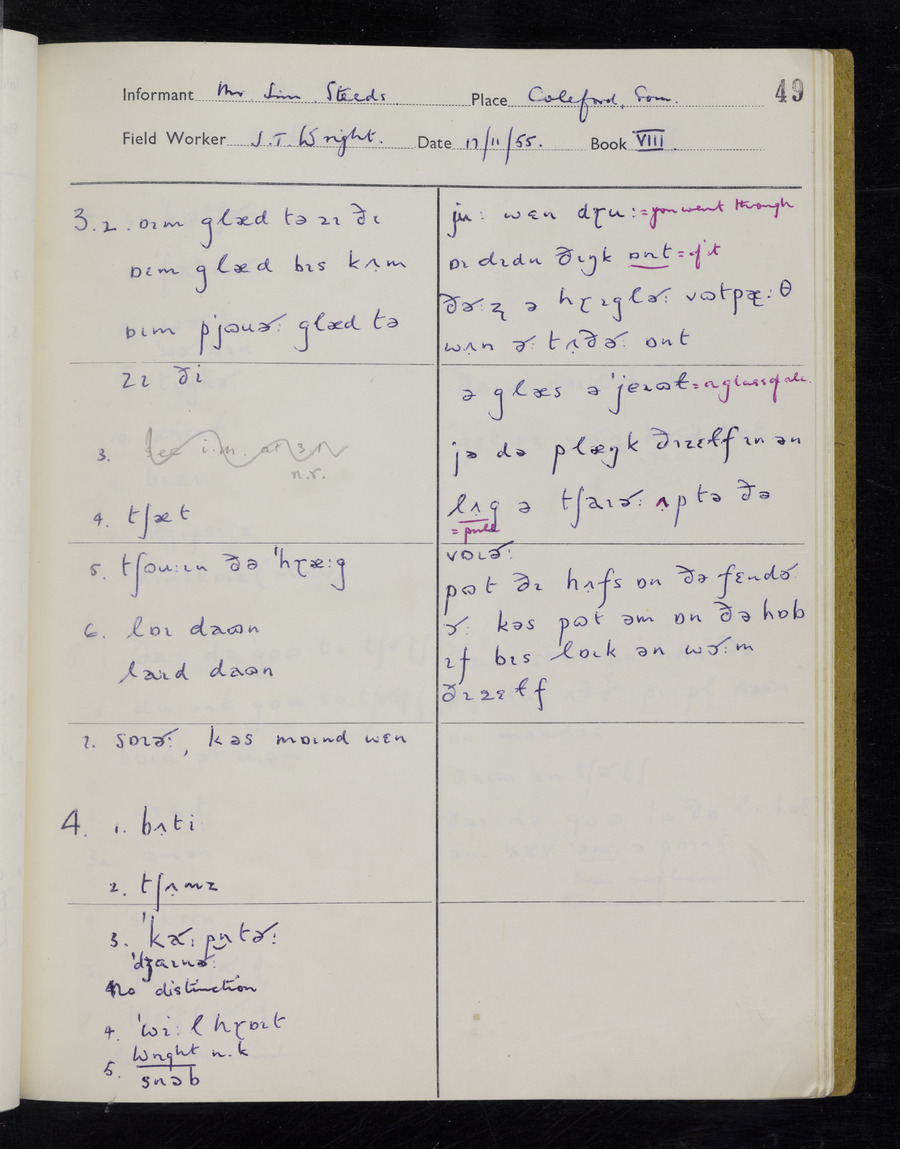 49
Informant Mr. Sim Steeds Place Coleford, Som.
Field Worker J.T. Wright. Date 17/11/55. Book VIII
3.2. ɒɪm glæd tə zɪ ðɪ
ɒɪm glæd bɪs kʌm
ɒɪm pjɷuɚ: glæd tə
zɪ ði
3. See i.m. at 3.1
n.r.
4. tʃæt
5. tʃɒu:ɪn ðə ˈhɽæ:g
6. lɒɪ daɷn
laɪd daɷn
7. sɒɪɚ:, kəs mɒɪnd wɛn
4. 1. bʌti
2. tʃʌmz
3. ˈkɑ:pn̩tɚ:
ˈdʒaɪnɚ:
No distinction
4. ˈwi:l hɽɒɪt
5. Wright n.k
snɒb
ju: wɛn dɽu: = you went through
ɒɪ dɪdn ðɪŋk ɒnt = of it
ðɚ:z ə hɽɪglɚ: vɷtpæ:θ
wʌn ɚ: tʌðɚ: ɒnt
ə glæs əˈjeɪɷt = a glass of ale.
jə də plæŋk ðɪzɛɫf ɪn ən
lʌg ə tʃaɪɚ: ʌp tə ðə
= pull
vɒɪɚ:
pɷt ðɪ hʌfs ɒn ðə fɛndɚ
ɚ: kəs pɷt əm ɒn ðə hɒb
ɪf bɪs lɒɪk ən wɚ:m
ðɪzɛɫf